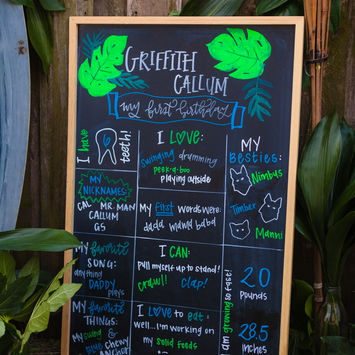 GRIFFITH
CALLUM
my first birthday
I have
6
teeth!
I LOVE:
swinging drumming
peek-a-boo
playing outside
MY
Besties:
Nimbus
Timber
Manni
MY
NICKNAMES:
CAL MR. MAN
CALLUM
GS
My first words were:
dada mama baba
My favorite
SONG:
anything
DADDY
plays
I CAN:
Pull myself up to stand!
crawl! clap!
I am growing so fast!
20
POUNDS
28.5
INCHES
MY favorite
THINGS:
My
chewy
I LOVE to eat.
well...I'm working
on my solid foods